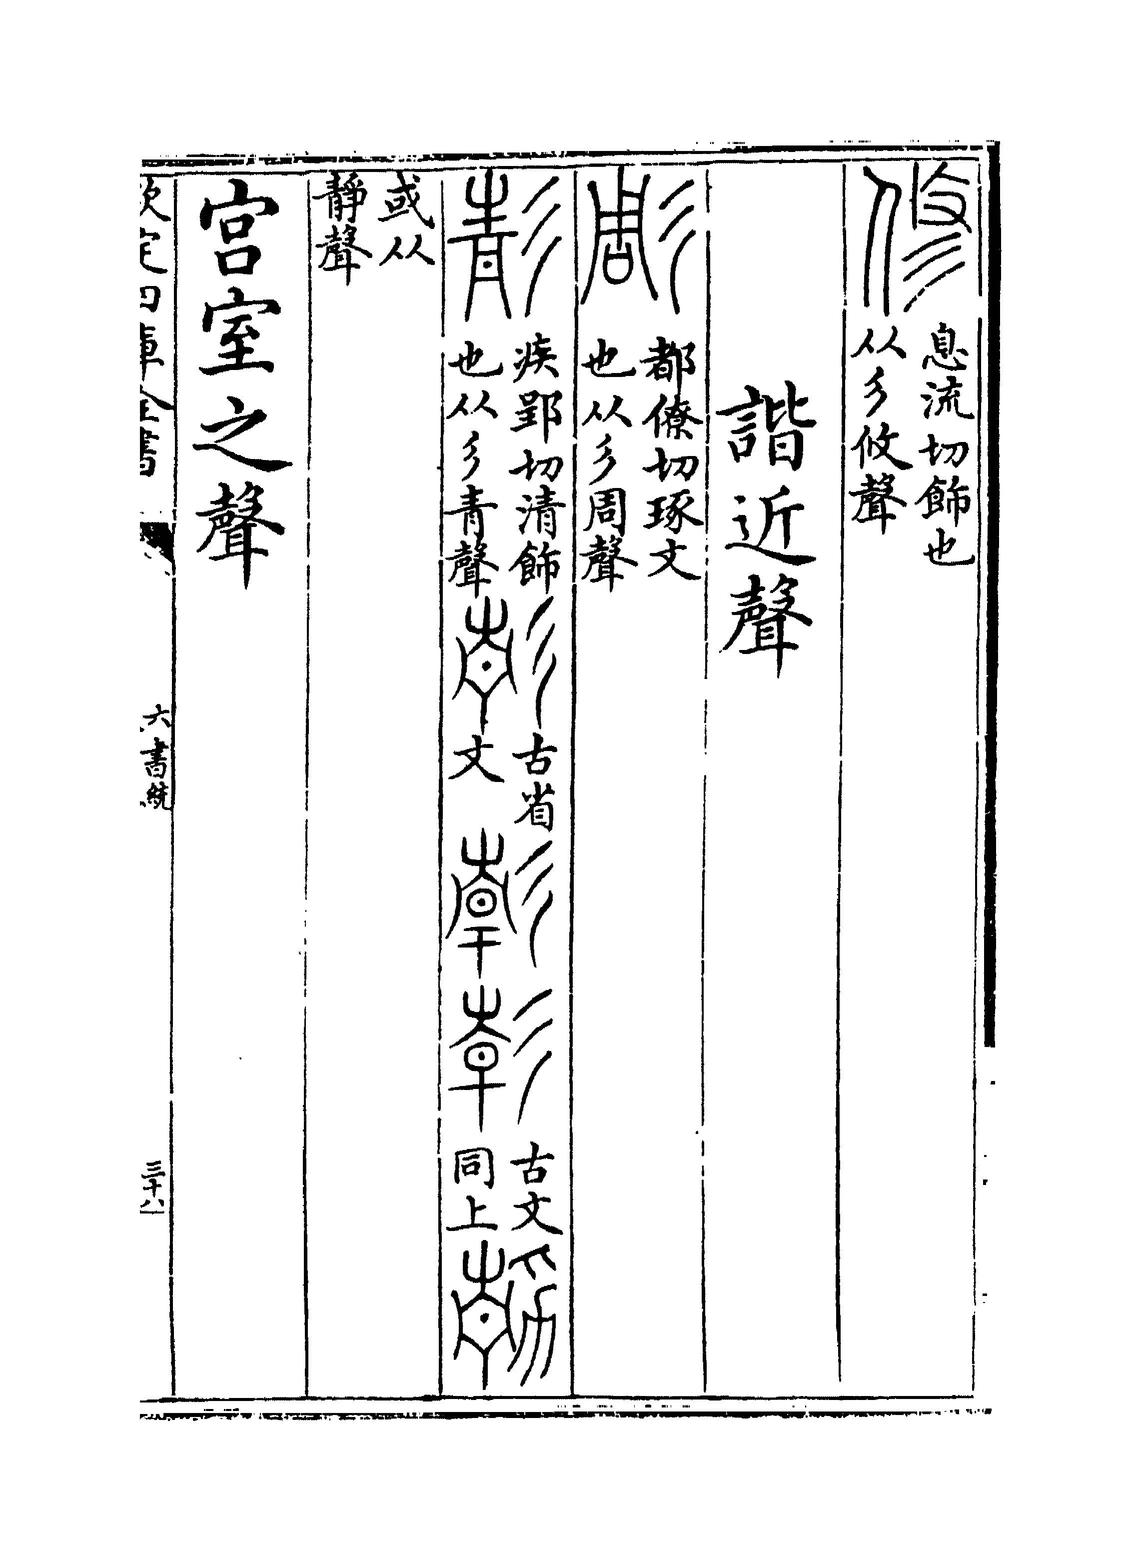 修息流切飾也
从彡攸聲
諧近聲
彫都僚切琢文
也从彡周聲
彰疾郢切清飾
也从彡青聲
古省
文
古文
同上
或从
靜聲
宮室之聲
欽定四庫全書
六書統
三十八